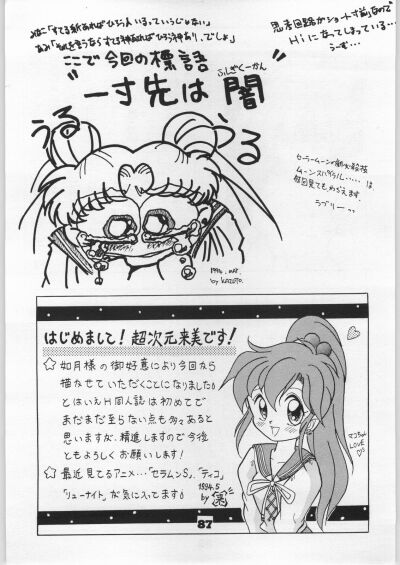 みなこ「すてる紙あればひろう人いるっていうじゃない」
あみ「それを言うならすてる神あればひろう神あり、でしょ」
ここで今回の標語
ふしぎくーかん
"一寸先は 闇"
思考回路がショート寸前なので
Hiになってしまっている…
うーむ…
うる
うる
ラブリーーっ
1994. MAR.
by KAZUTO.
はじめまして！超次元来美です！
☆如月様の御好意により今回から
描かせていただくことになりました。
とはいえH同人誌は初めてで
まだまだ至らない点も多々あると
思いますが、精進しますので今後
ともよろしくお願いします！
☆最近見てるアニメ…「セラムンS」、「ティコ」
「リューナイト」が気に入ってます。
1994.5
by
まこちゃん
LOVE
87